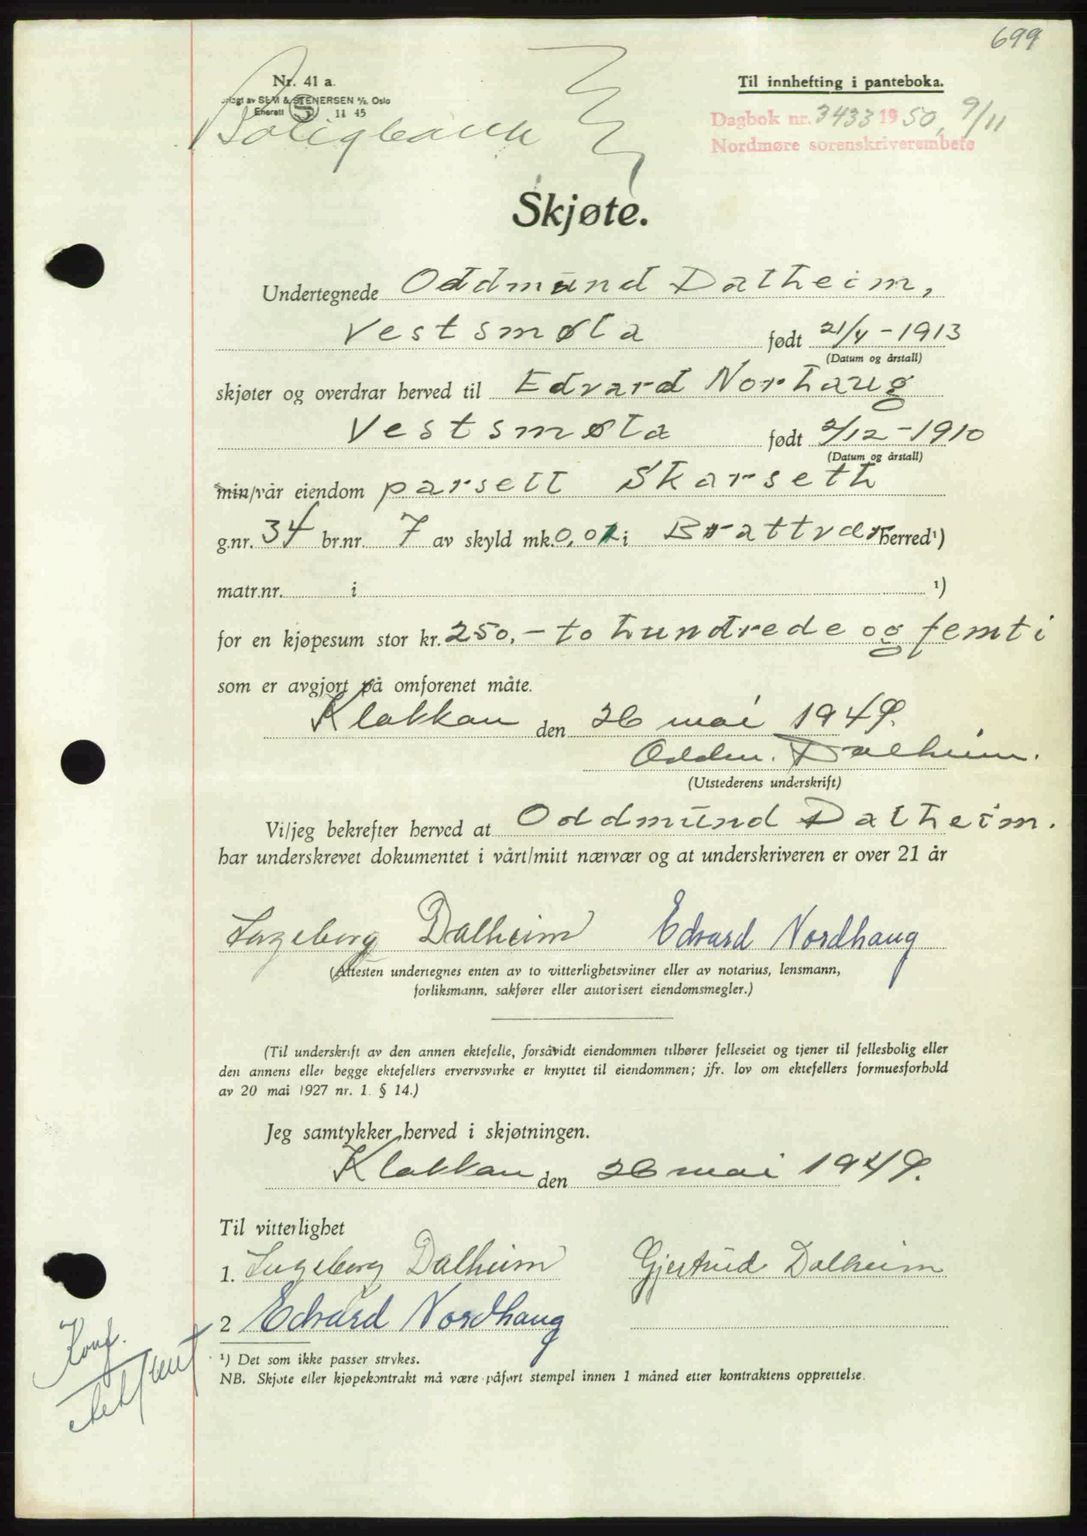 699
Nr. 41 a.
SEM & STENERSEN A/S, Oslo
Enerett S 11 45
Boligbank
Til innhefting i panteboka.
Dagbok nr. 3433 1950, 9/11
Nordmøre sorenskriverembete
Skjøte.
Undertegnede Oddmund Dalheim,
Vestsmøla født 21/4-1913
(Datum og årstall)
skjøter og overdrar herved til Edvard Norhaug
Vestsmøla født 2/12-1910
(Datum og årstall)
min/vår eiendom parsell Skarseth
g.nr. 34 br.nr. 7 av skyld mk. 0,01 i Brattvær herred¹)
matr.nr. i ¹)
for en kjøpesum stor kr. 250,- to hundrede og femti
som er avgjort på omforenet måte.
Klakkan den 26 mai 1949.
Oddm. Dalheim.
(Utstederens underskrift)
Vi/jeg bekrefter herved at Oddmund Dalheim.
har underskrevet dokumentet i vårt/mitt nærvær og at underskriveren er over 21 år
Ingeborg Dalheim Edvard Nordhaug
(Attesten undertegnes enten av to vitterlighetsvitner eller av notarius, lensmann,
forliksmann, sakfører eller autorisert eiendomsmegler.)
(Til underskrift av den annen ektefelle, forsåvidt eiendommen tilhører felleseiet og tjener til fellesbolig eller
den annens eller begge ektefellers ervervsvirke er knyttet til eiendommen; jfr. lov om ektefellers formuesforhold
av 20 mai 1927 nr. 1. § 14.)
Jeg samtykker herved i skjøtningen.
Klakkan den 26 mai 1949.
Til vitterlighet
1. Ingeborg Dalheim Gjertrud Dalheim
2 Edvard Nordhaug
¹) Det som ikke passer strykes.
NB. Skjøte eller kjøpekontrakt må være påført stempel innen 1 måned etter kontraktens opprettelse.
Konf.